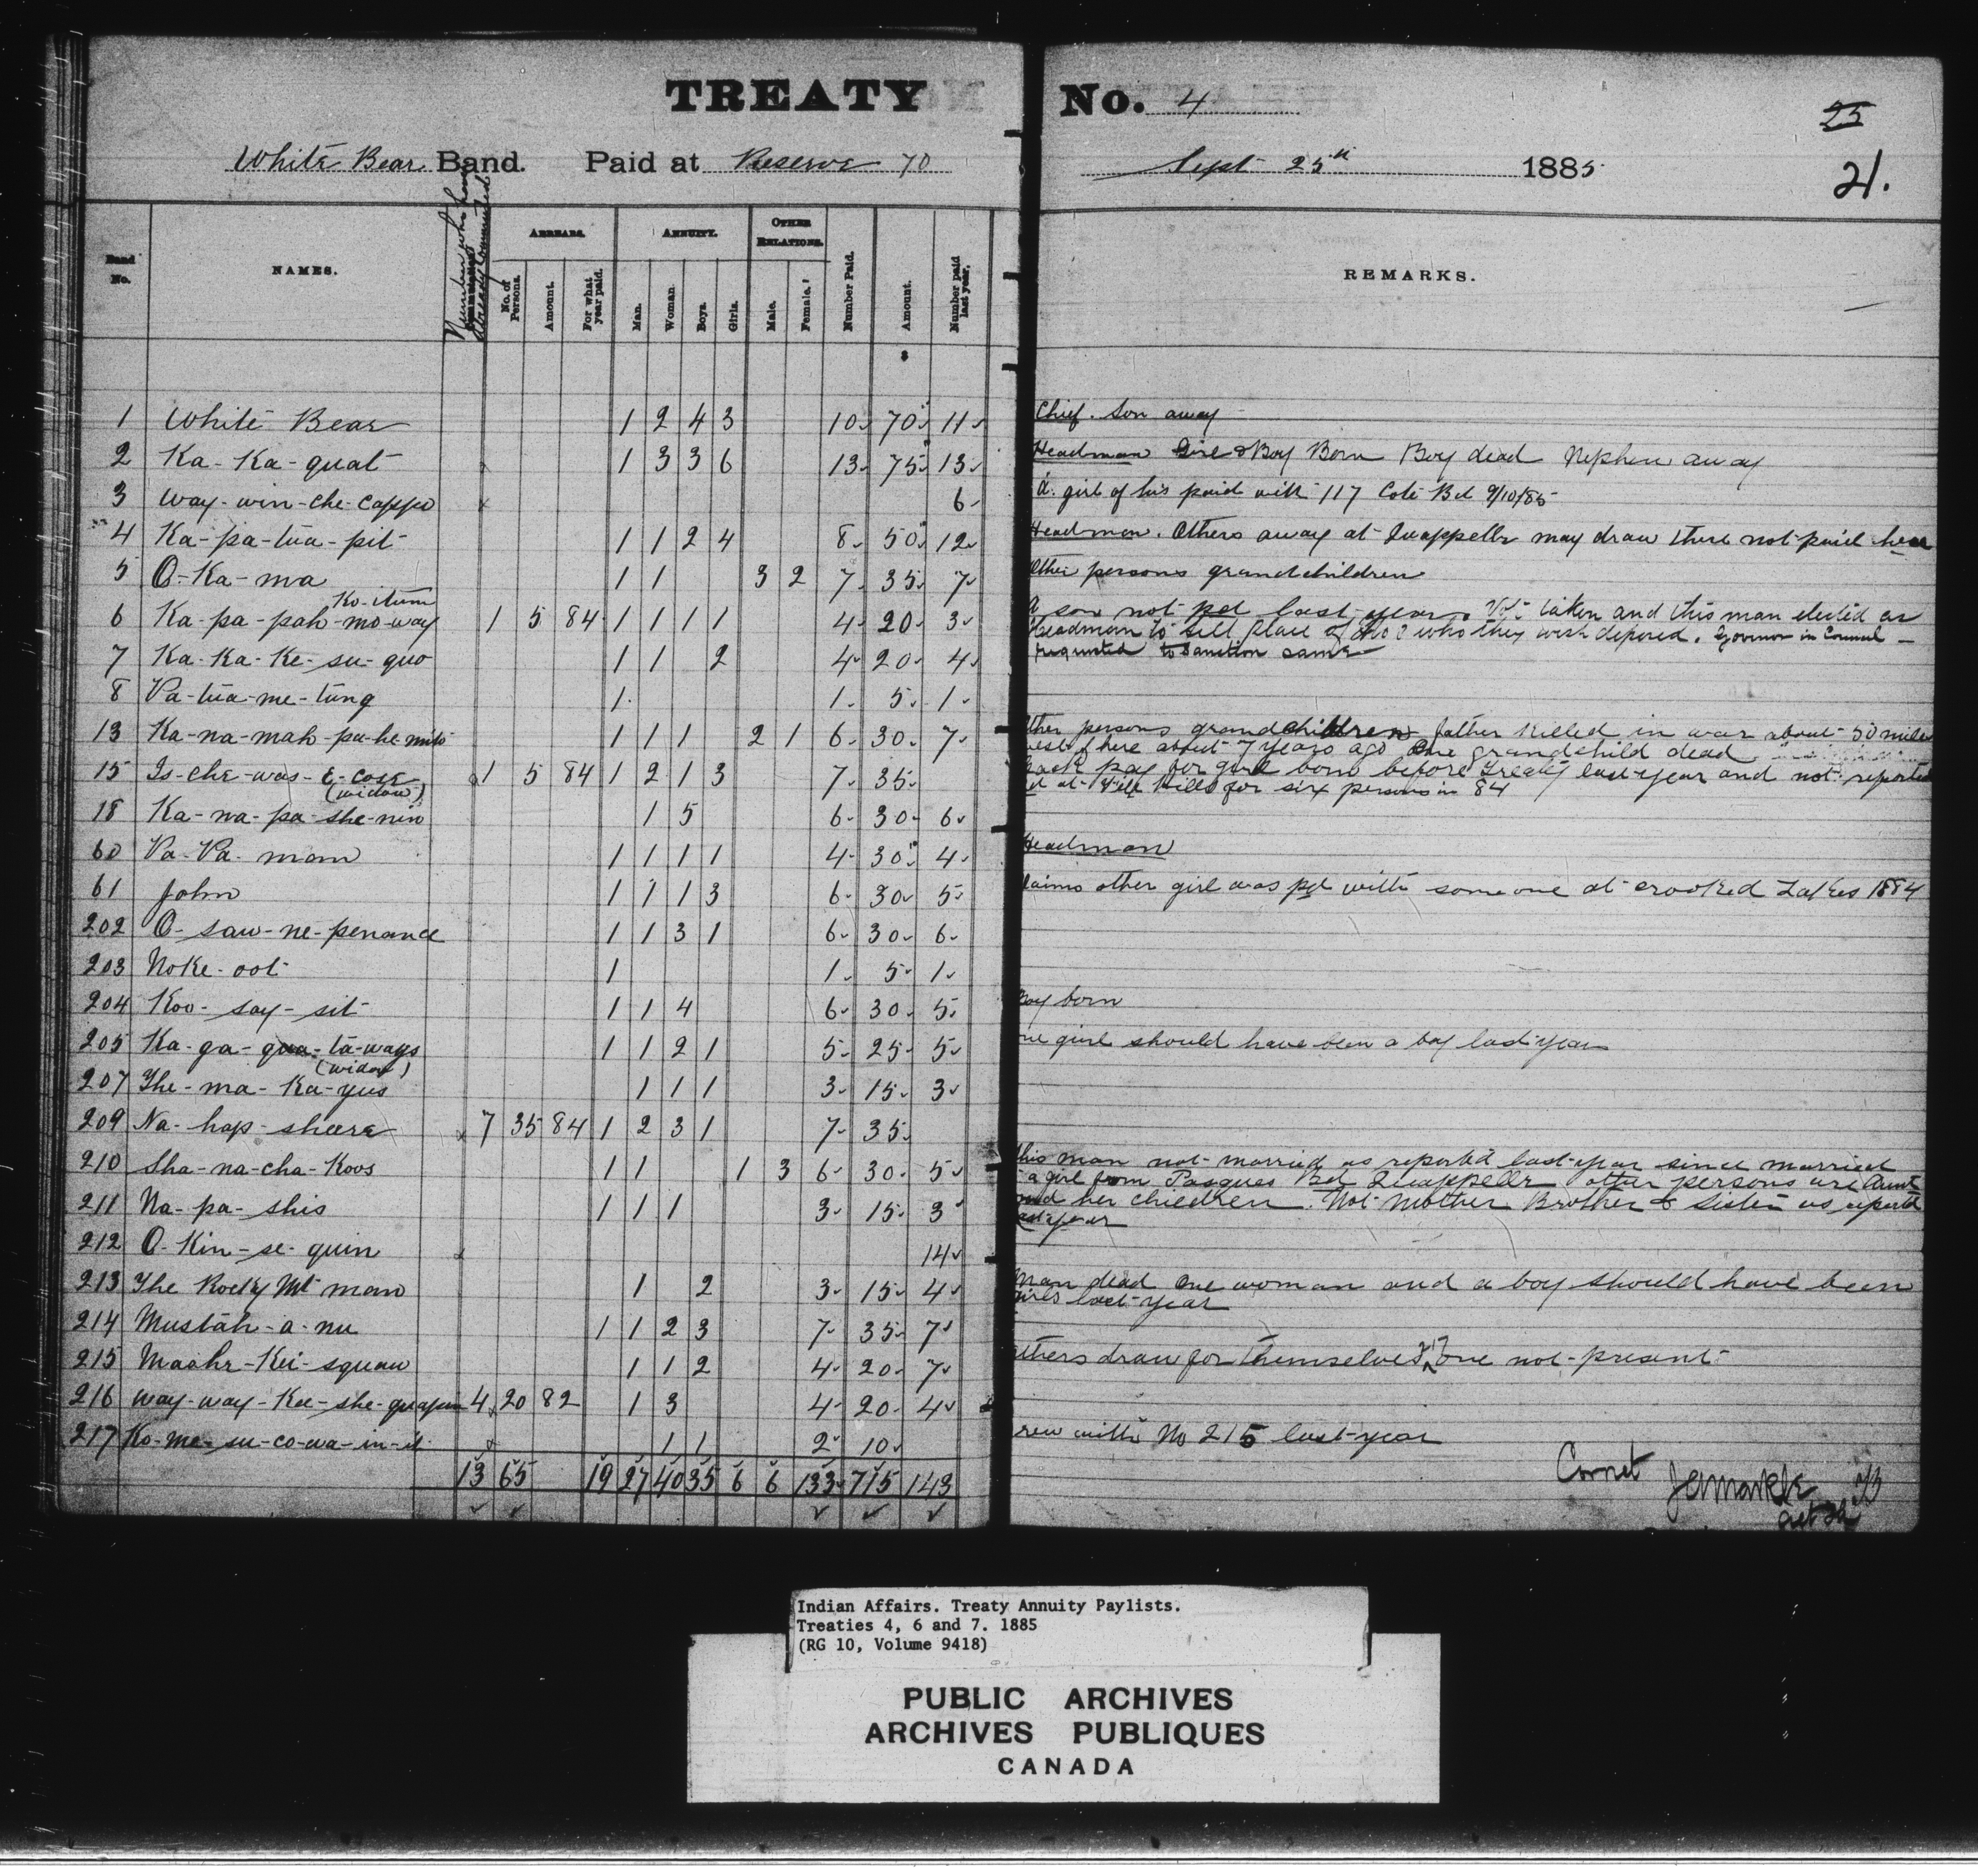 TREATY No. 4
25
White Bear Band. Paid at Reserve 70 Sept 25th 1885
21.
Band No.
NAMES.
Number who have already commuted
ARREARS.
No. of Persons.
Amount.
For what year paid.
ANNUITY.
Man.
Woman.
Boys.
Girls.
OTHER RELATIONS.
Male.
Female.
Number Paid.
Amount.
Number paid last year.
REMARKS.
$
1 White Bear 1 2 4 3 10 70 11 Chief. Son away
2 Ka-Ka-quat 1 3 3 6 13 75 13 Headman Girl & Boy Born Boy dead Nephew away
3 Way-win-che-cappo x 6 A girl of his paid with 117 Cote Bd 9/10/85
4 Ka-pa-tua-pit 1 1 2 4 8 50 12 Headman. Others away at Quappelle may draw there not paid here
5 O-Ka-ma 1 1 3 2 7 35 7 Other persons grandchildren
Ko-itum
6 Ka-pa-pah-mo-way 1 5 84 1 1 1 1 4 20 3 A son not pd last year. Vote taken and this man elected as
Headman to fill place of No 3 who they wish deposed. Govenor in Council
7 Ka-Ka-Ke-su-quo 1 1 2 4 20 4 requested to Sanction same
8 Pa-tua-me-tung 1 1 5 1
13 Ka-na-mah-pa-he-mito 1 1 1 2 1 6 30 7 ther persons grandchildren father Killed in war about 50 miles
west of here about 7 years ago One grandchild dead
15 Is-che-was-E-case x 1 5 84 1 2 1 3 7 35 back pay for girl born before Treaty last year and not reported
pd at File Hills for six persons in 84
(widow)
18 Ka-na-pa-she-nin 1 5 6 30 6
60 Pa-Pa-mam 1 1 1 1 4 30 4 Headman
61 John 1 1 1 3 6 30 5 laims other girl was pd with some one at crooked Lakes 1884
202 O-saw-ne-penance 1 1 3 1 6 30 6
203 Noke-oot 1 1 5 1
204 Koo-say-sit 1 1 4 6 30 5 Boy born
205 Ka-ga-qua-ta-ways 1 1 2 1 5 25 5 ne girl should have been a boy last year
(widow)
207 The-ma-Ka-yus 1 1 1 3 15 3
209 Na-hap-sheere x 7 35 84 1 2 3 1 7 35
210 Sha-na-cha-Koos 1 1 1 3 6 30 5 this man not married as reported last year since married
a girl from Pasquas Bd Quappelle other persons are Aunt
211 Na-pa-shis 1 1 1 3 15 3 and her children. Not Mother Brother & Sister as reported
last year
212 O-Kin-se-quin x 14
213 The Rocky Mt man 1 2 3 15 4 Man dead One woman and a boy should have been
girls last year
214 Mustah-a-nu 1 1 2 3 7 35 7
215 Maahr-Kei-squaw 1 1 2 4 20 7 others draw for themselves 217 One not present
216 Way-way-Kee-she-quapim 4 20 82 1 3 4 20 4
217 Ko-me-su-co-wa-in-it x 1 1 2 10 rew with No 215 last year
13 65 19 27 40 35 6 6 133 715 143
Correct
J A Markle
Indian Affairs. Treaty Annuity Paylists.
Treaties 4, 6 and 7. 1885
(RG 10, Volume 9418)
PUBLIC ARCHIVES
ARCHIVES PUBLIQUES
CANADA